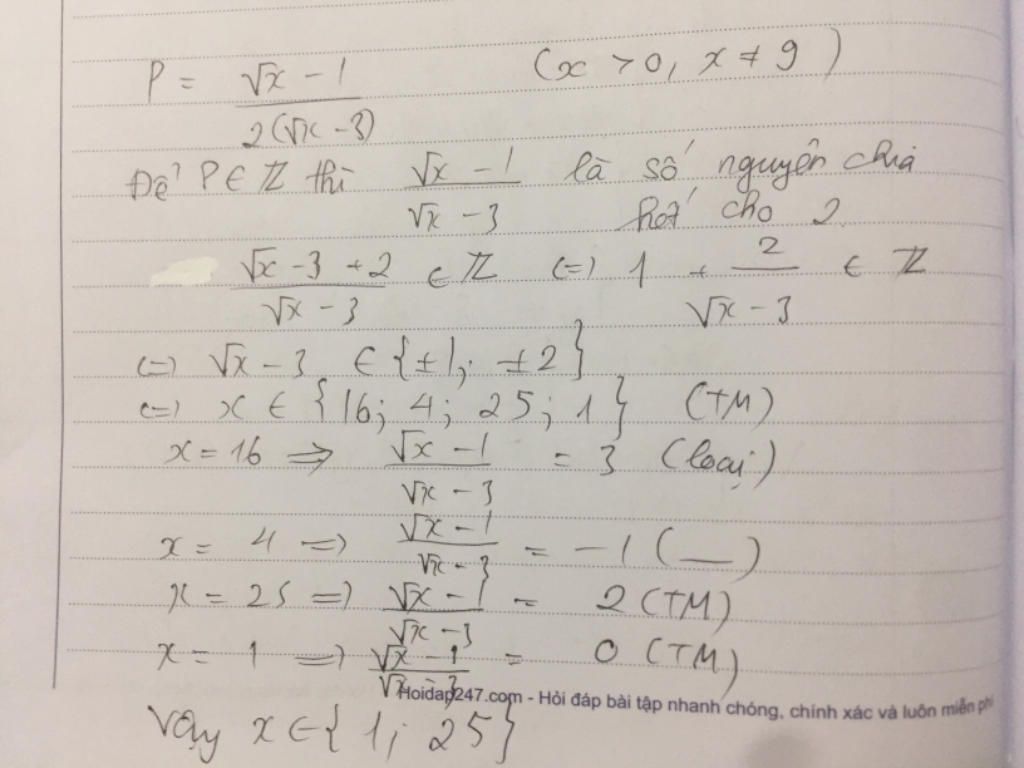 P = (√x - 1)/(2(√x - 3)) (x > 0, x ≠ 9)
Để P ∈ ℤ thì (√x - 1)/(√x - 3) là số nguyên chia
hết cho 2
(√x - 3 + 2)/(√x - 3) ∈ ℤ (=) 1 + 2/(√x - 3) ∈ ℤ
(=) √x - 3 ∈ {±1; ±2}
(=) x ∈ {16; 4; 25; 1} (TM)
x = 16 => (√x - 1)/(√x - 3) = 3 (loại)
x = 4 => (√x - 1)/(√x - 3) = -1 (__)
x = 25 => (√x - 1)/(√x - 3) = 2 (TM)
x = 1 => (√x - 1)/(√x - 3) = 0 (TM)
Hoidap247.com - Hỏi đáp bài tập nhanh chóng, chính xác và luôn miễn phí
Vậy x ∈ {1; 25}